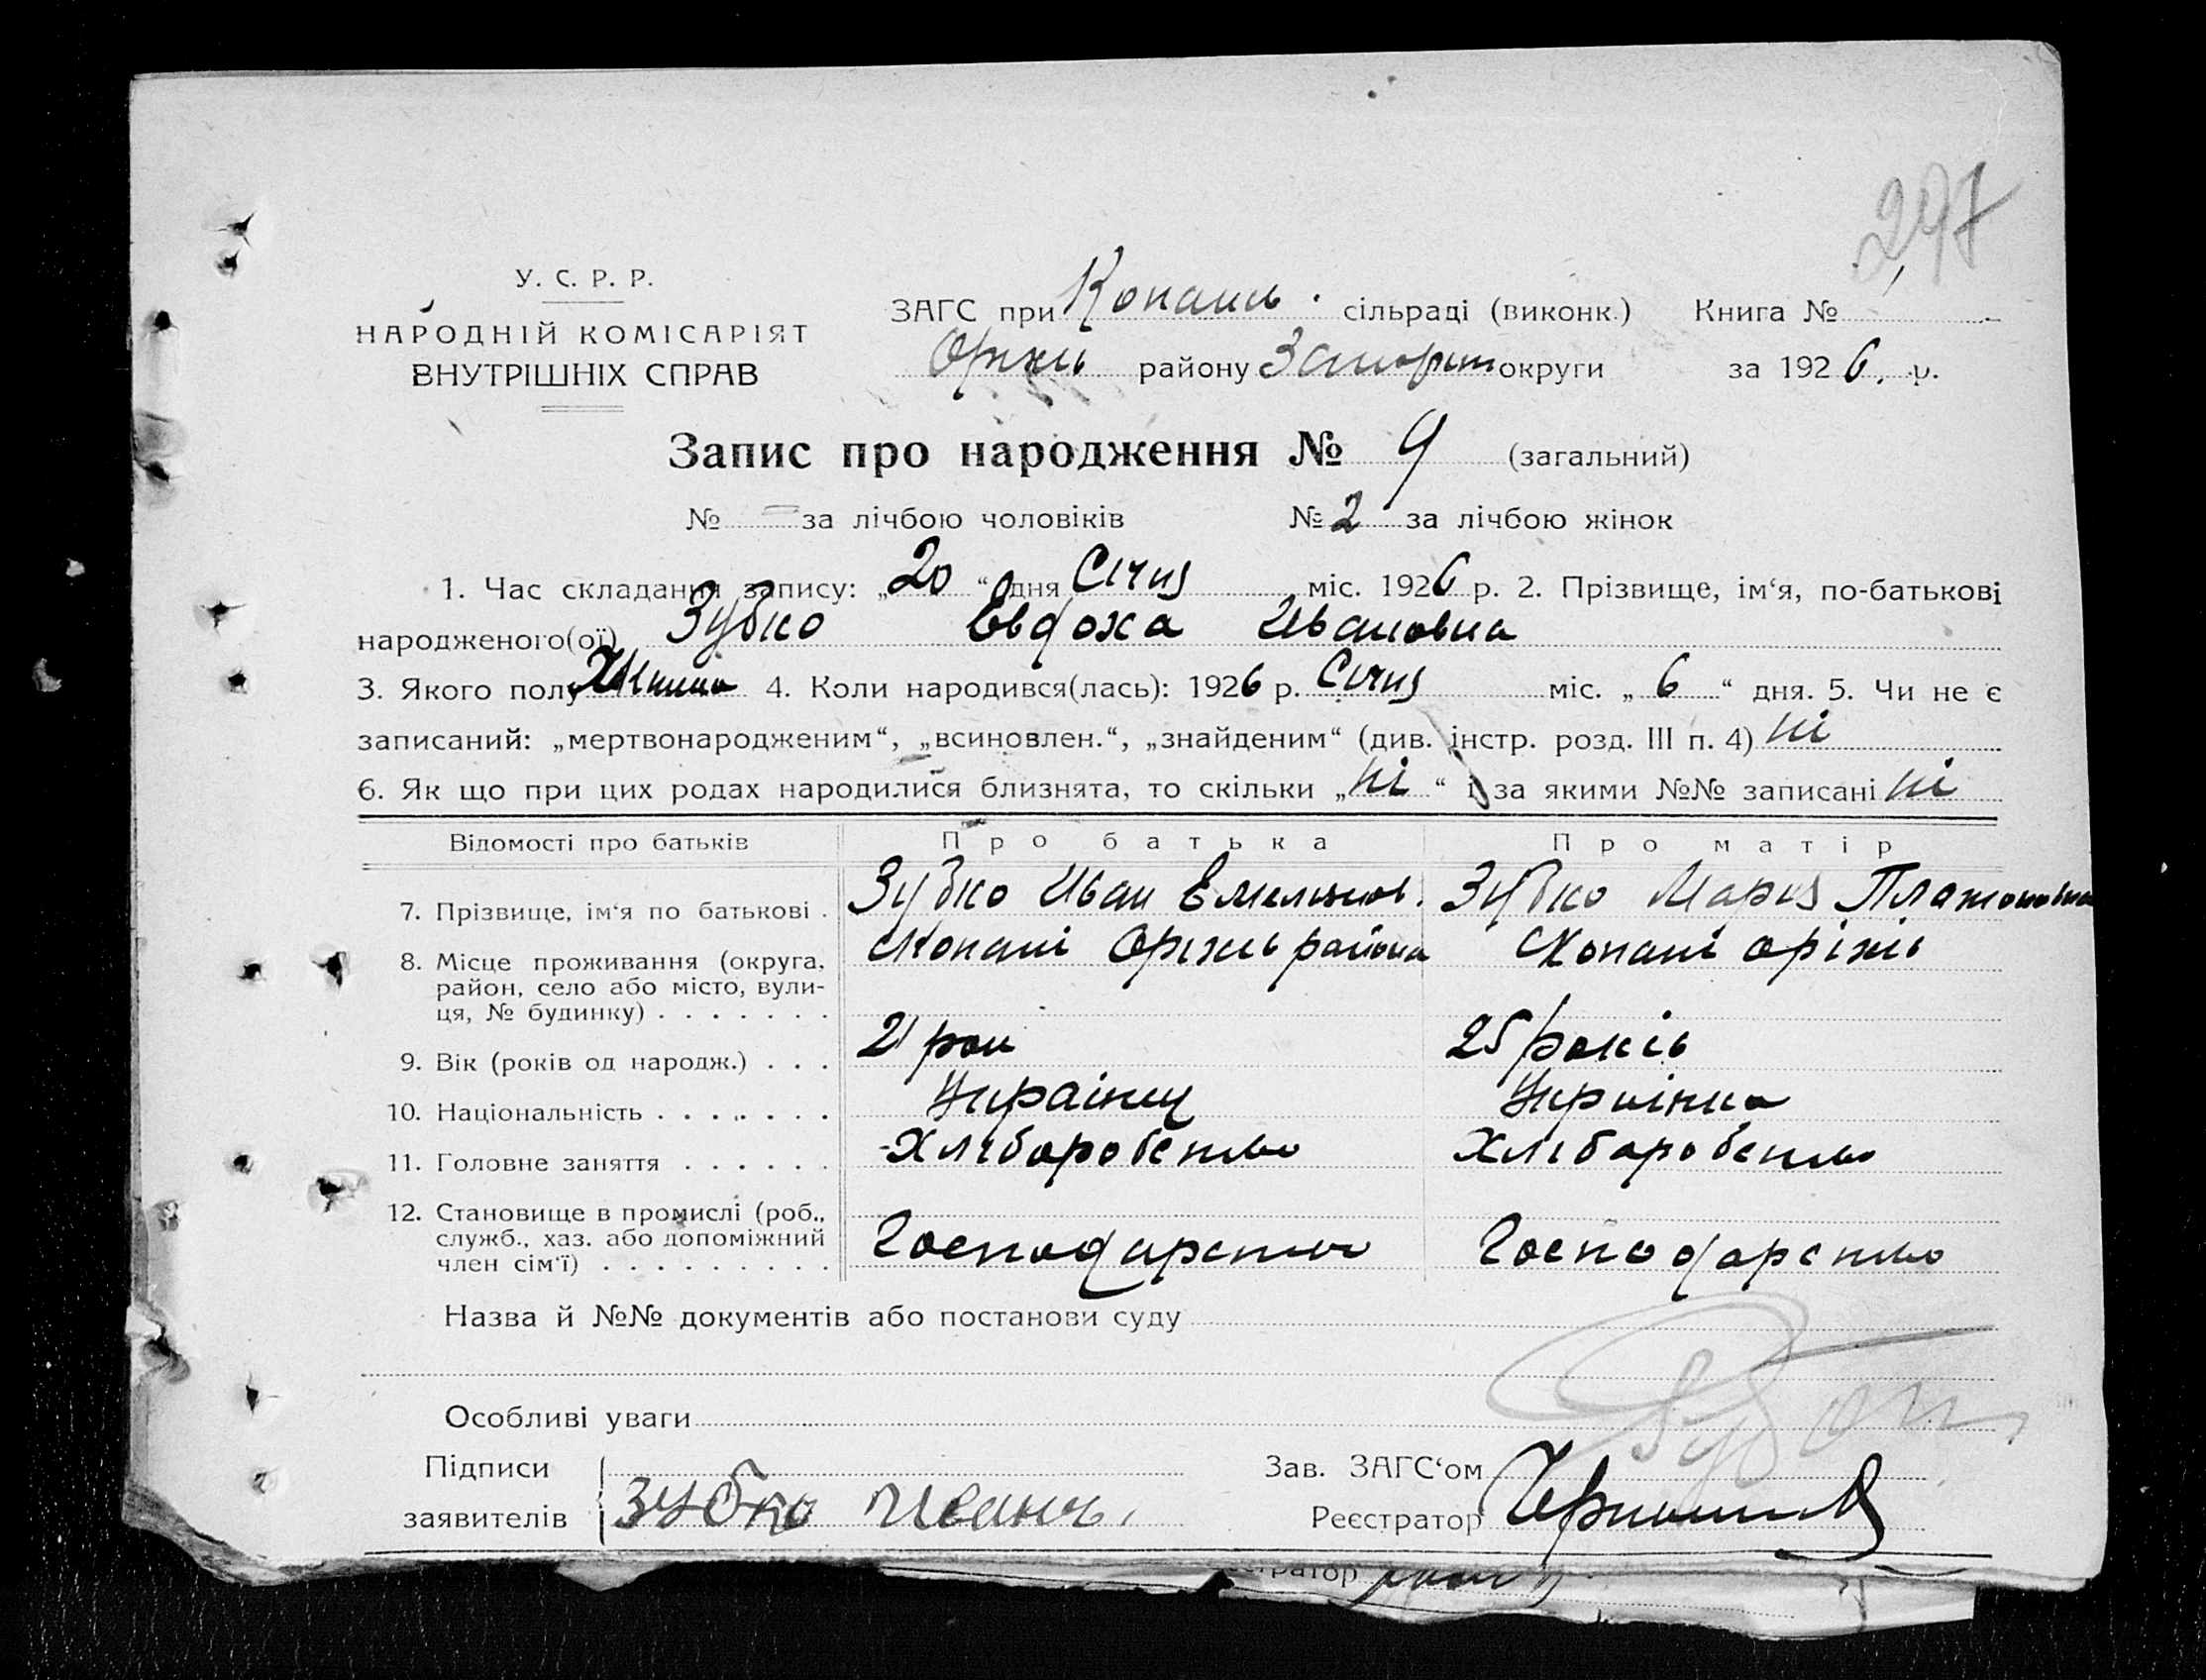 297
У. С. Р. Р.
НАРОДНІЙ КОМІСАРІЯТ
ВНУТРІШНІХ СПРАВ
ЗАГС при Копань. сільраді (виконк.) Книга № 1
Оріхів району Запоріж округи за 1926. р.
Запис про народження № 9 (загальний)
№ — за лічбою чоловіків № 2 за лічбою жінок
1. Час складання запису: „20“ дня Січня міс. 1926 р. 2. Прізвище, ім‘я, по-батькові
народженого(ої) Зубко Евдоха Ивановна
3. Якого полу Жиноча 4. Коли народився(лась): 1926 р. Січня міс. „6“ дня. 5. Чи не є
записаний: „мертвонародженим“, „всиновлен.“, „знайденим“ (див. інстр. розд. III п. 4) ні
6. Як що при цих родах народилися близнята, то скільки „ні“ і за якими №№ записані ні
Відомості про батьків Про батька Про матір
7. Прізвище, ім‘я по батькові . Зубко Иван Емельянов. Зубко Мария Платоновна
8. Місце проживання (округа, район, село або місто, вули-ця, № будинку) . . . . . . . с Копані Оріхів района с Копані оріхів
9. Вік (років од народж.) . . . 21 рок 25 років
10. Національність . . . . . . . Украінец Украінка
11. Головне заняття . . . . . . Хліборобство Хліборобство
12. Становище в промислі (роб., служб., хаз. або допоміжний член сім‘ї) . . . . . . . . . Господарство Господарство
Назва й №№ документів або постанови суду
Особливі уваги
Підписи
заявителів Зубко Иванъ.
Зав. ЗАГС‘ом
Реєстратор